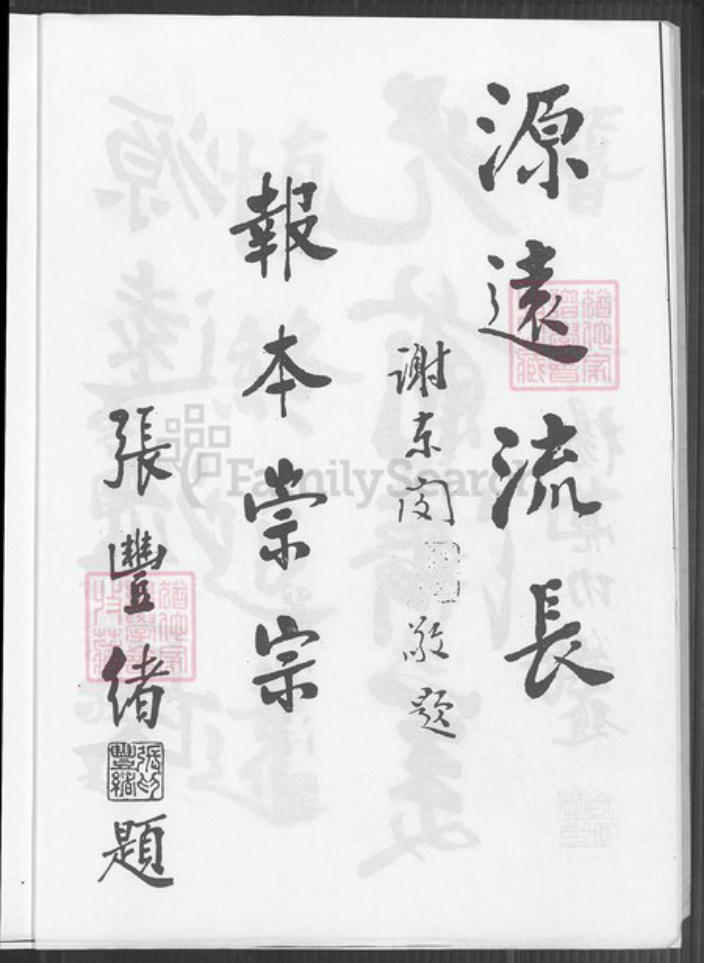 源遠流長
謝東閔敬題
報本崇宗
張豐緒題
張豐緒印
FamilySearch